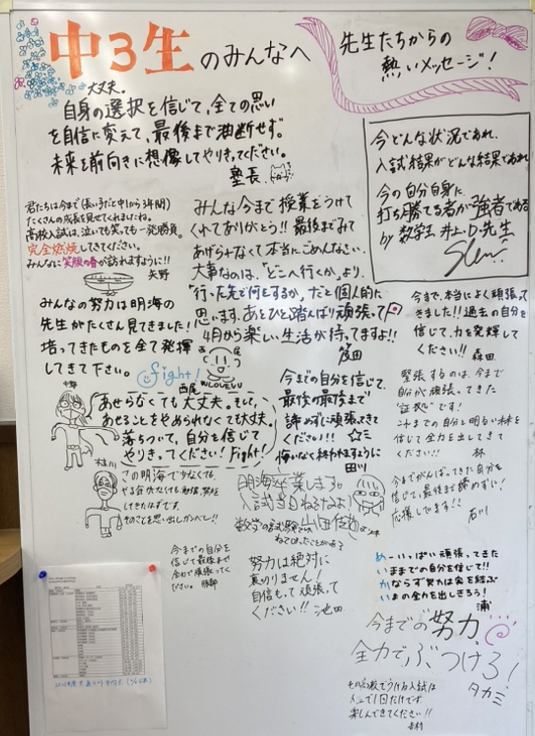 中3生のみんなへ
先生たちからの
熱いメッセージ!
大丈夫。
自身の選択を信じて、全ての思い
を自信に変えて、最後まで油断せず。
未来を前向きに想像してやりきってください。
塾長
今どんな状況であれ、
入試結果がどんな結果であれ
今の自分自身に
打ち勝てる者が強者である
by 数学王 井上D先生
君たちは今まで(長い子だと中1から3年間)
たくさんの成長を見せてくれましたね。
高校入試は、泣いても笑っても一発勝負。
完全燃焼してきてください。
みんなに笑顔の春が訪れますように!!
矢野
みんな今まで授業をうけて
くれてありがとう!!最後までみて
あげられなくて本当にごめんなさい。
大事なのは、「どこへ行くか」より、
「行った先で何をするか」だと個人的に
思います。あとひと踏んばり頑張って
4月から楽しい生活が待ってますよ!!
みんなの努力は明海の
先生がたくさん見てきました!
培ってきたものを全て発揮
してきて下さい。
fight!
西尾
今まで、本当によく頑張って
きました!!過去の自分を
信じて、力を発揮して
ください!!
森田
緊張するのは、今まで
自分が頑張ってきた
"証拠"です!
これまでの自分と明るい未来を
信じて全力を出してきて
ください!!
林
あせらなくても大丈夫。そして、
あせることをやめられなくても大丈夫。
落ちついて、自分を信じて
やりきってください!Fight!
今までの自分を信じて、
最後の最後まで
諦めずに頑張ってきて
ください!!
悔いなく終われますように
田川
この明海で少なくても、
そのことを思い出しガンバレ!!
明海卒業します。
入試当日ねるなよ!
今までがんばってきた自分を
信じて、最後まで諦めずに!
応援してます!!
石川
今までの自分を
信じて最後まで
全力で頑張ってく
ださい。
服部
努力は絶対に
裏切りません!
自信もって頑張って
ください!!
池田
めーいっぱい頑張ってきた
いままでの自分を信じて!!
かならず努力は実を結ぶ
いまの全力を出しきろう!
浦
今までの努力、
全力でぶつけろ!
タカミ
その高校でうける入試は
人生で1回だけです。
楽しんできてください!!